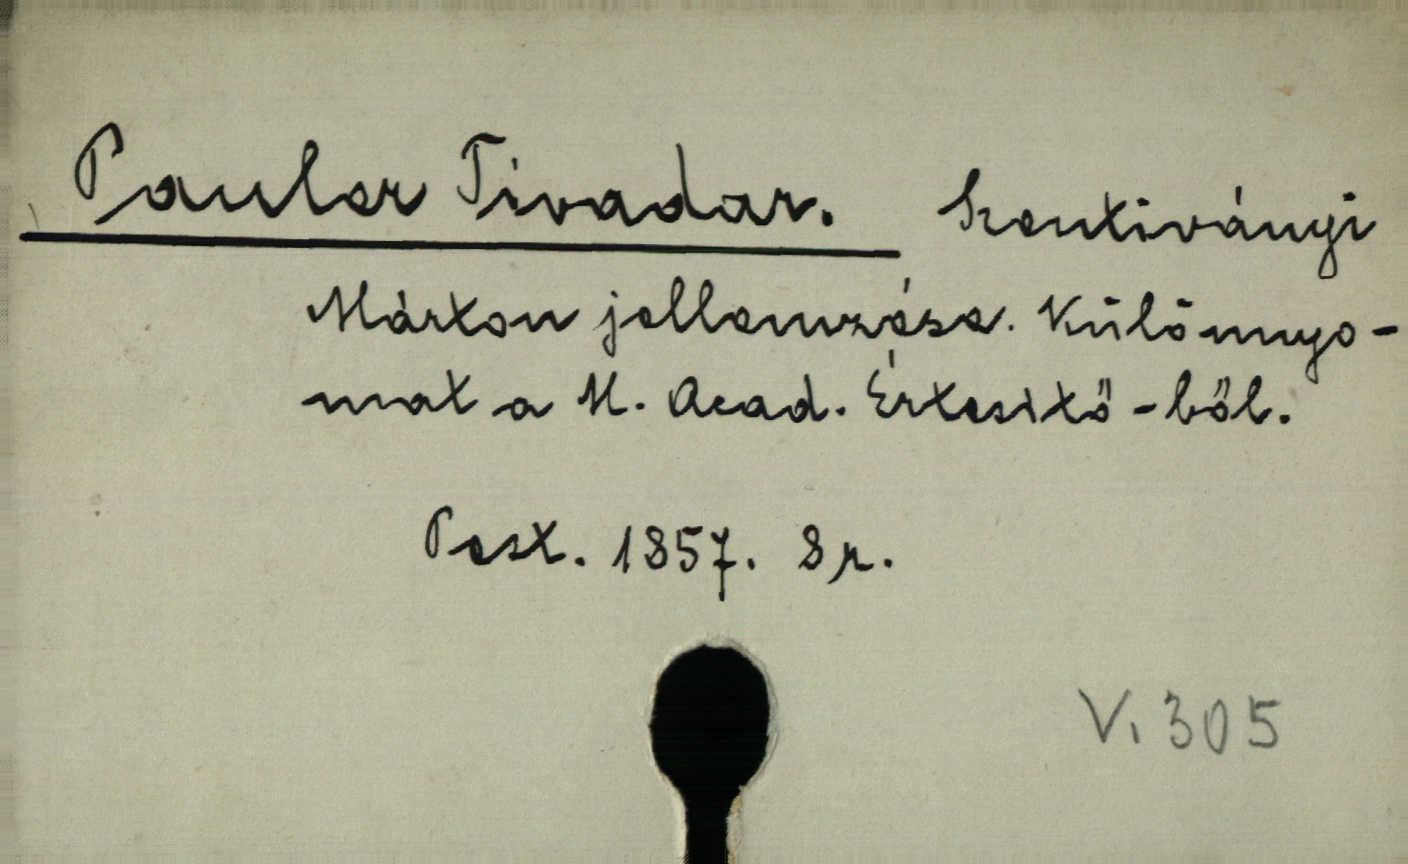 Pauler Tivadar. Szentiványi
Márton jellemzése. Különnyo-
mat a M. Acad. Értesitő-ből.
Pest. 1857. 8r.
V. 305